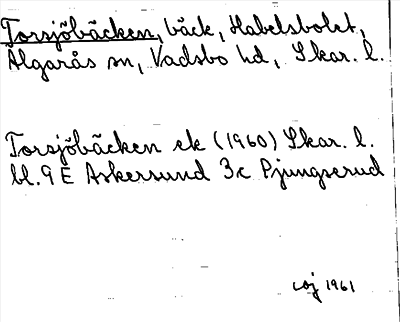 Torsjöbäcken, bäck, Habelsbolet,
Älgarås sn, Vadsbo hd, Skar. l.
Torsjöbäcken ek (1960) Skar. l.
bl. 9 E Askersund 3c Pjungserud
1961